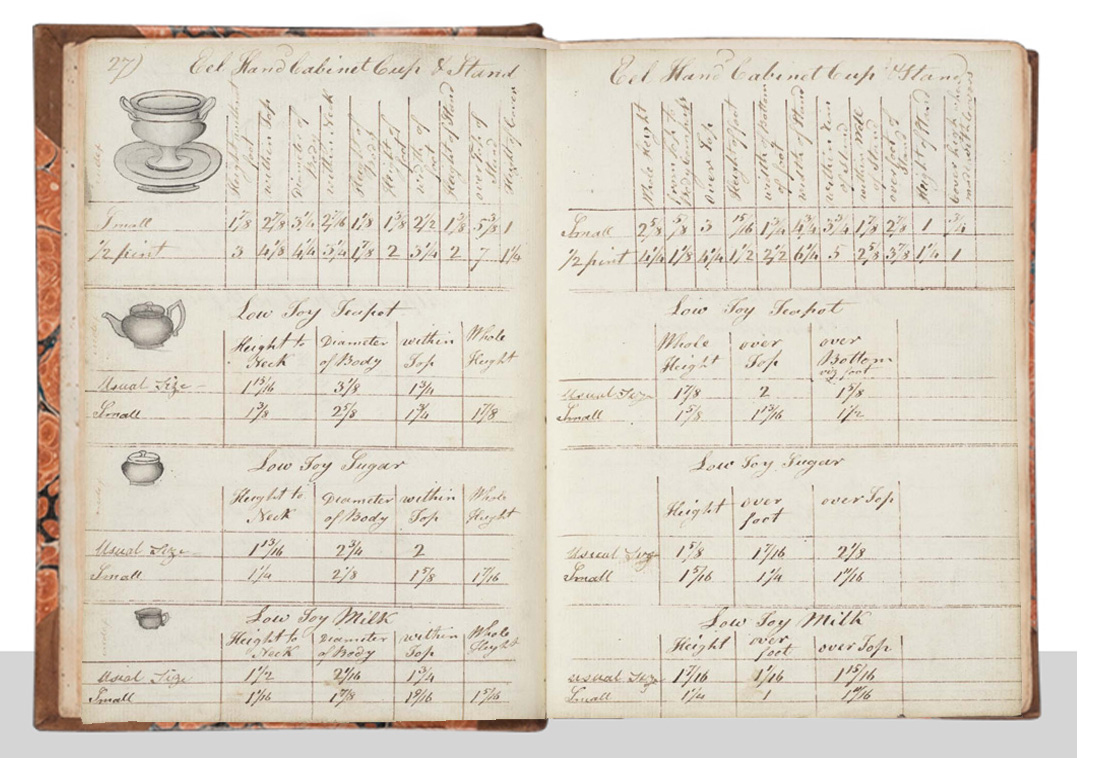 27) Eel Hand Cabinet Cup & Stand
within Top
Diameter of Body
within Neck
Height of Body
Height of foot
width of foot
Height of Stand
over Top of Stand
Height of Cover
Small 1 7/8 2 7/8 3 1/4 1 7/8 1 3/8 2 1/2 1 3/8 5 3/8 1
1/2 pint 3 4 1/8 4 1/4 3 1/4 1 7/8 2 3 1/4 2 7 1 1/4
Low Toy Teapot
Height to Neck Diameter of Body within Top Whole Height
Usual Size 1 15/16 3 1/8 1 3/4
Small 1 3/8 2 5/8 1 3/4 1 7/8
Low Toy Sugar
Height to Neck Diameter of Body within Top Whole Height
Usual Size 1 13/16 2 3/4 2
Small 1 1/4 2 1/8 1 5/8 1 7/16
Low Toy Milk
Height to Neck Diameter of Body within Top Whole Height
Usual Size 1 1/2 2 1/16 1 3/4
Small 1 1/16 1 7/8 1 9/16 1 5/16
Eel Hand Cabinet Cup & Stand
Whole Height
over Top
Height of foot
width of Bottom of foot
width of Stand
within Rim of Stand
within Well of Stand
over foot of Stand
Height of Stand
Small 2 5/8 5/8 3 15/16 1 3/4 4 3/4 3 3/4 1 7/8 2 7/8 1 3/4
1/2 pint 4 1/4 1 1/8 4 1/4 1 1/2 2 1/2 6 1/4 5 2 5/8 3 7/8 1 1/4 1
Low Toy Teapot
Whole Height over Top over Bottom viz foot
Usual Size 1 7/8 2 1 5/8
Small 1 5/8 1 13/16 1 1/2
Low Toy Sugar
Height over foot over Top
Usual Size 1 5/8 1 7/16 2 1/8
Small 1 5/16 1 1/4 1 11/16
Low Toy Milk
Height over foot over Top
usual Size 1 7/16 1 1/16 1 15/16
Small 1 1/4 1 1 11/16